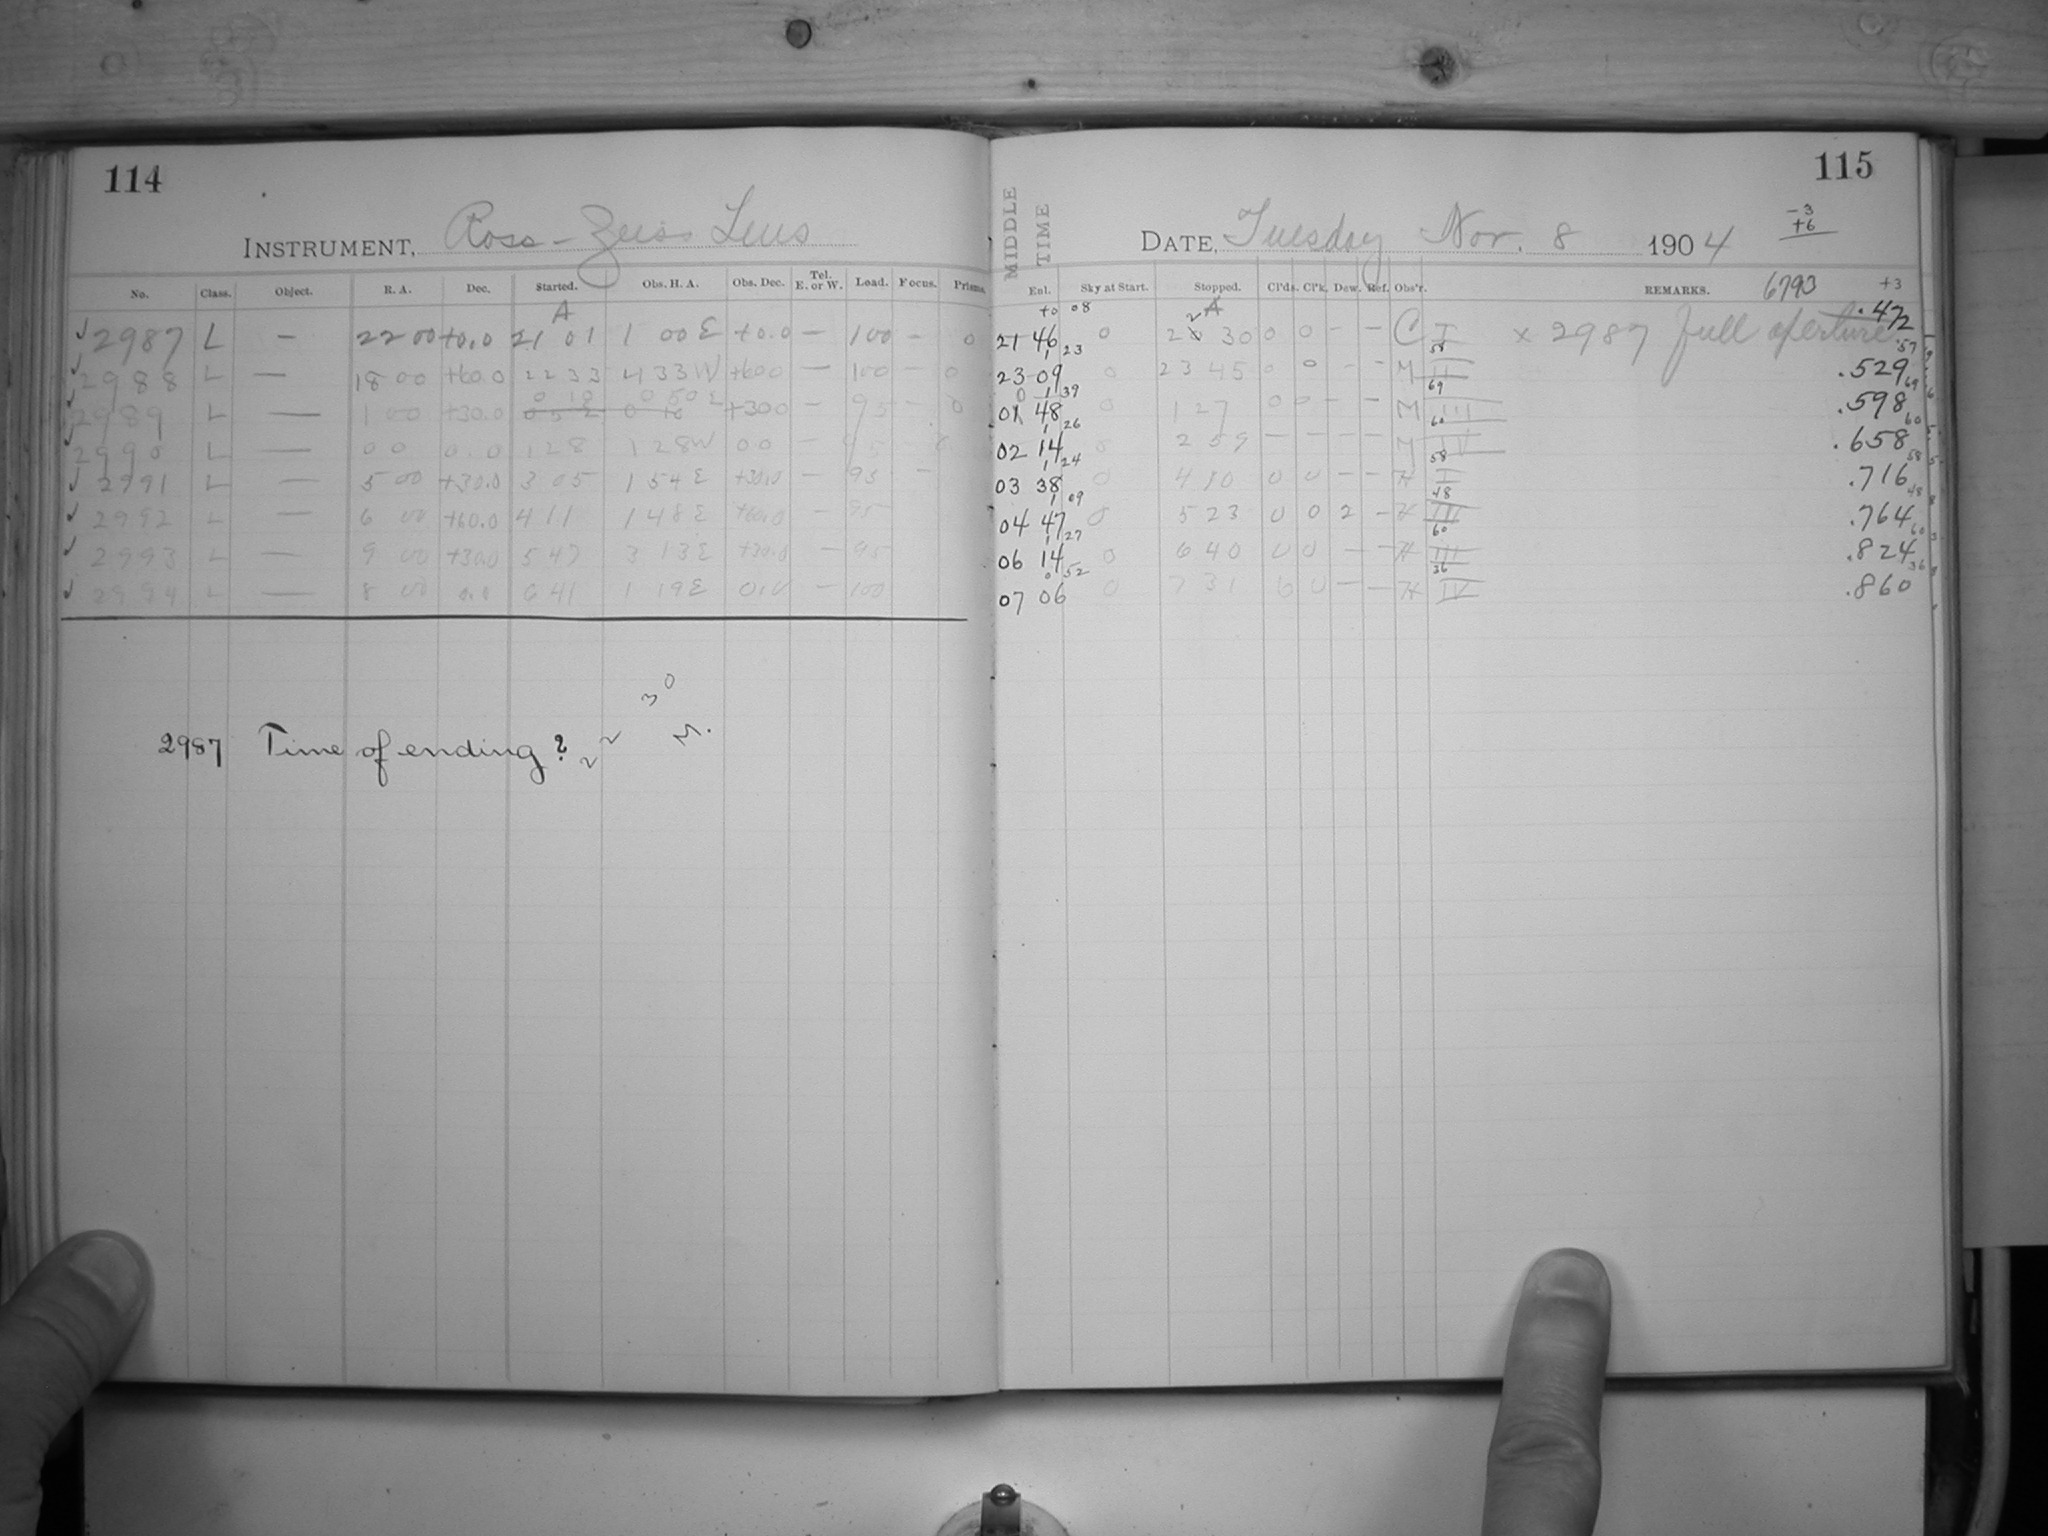 114
INSTRUMENT, Ross-Zeiss Lens
No. Class. Object. R. A. Dec. Started. Obs. H. A. Obs. Dec. Tel. E. or W. Load. Focus. Prisms.
A
✓ 2987 L — 22 00 +0.0 21 01 1 00 E +0.0 — 100 — 0
✓ 2988 L — 18 00 +60.0 22 33 4 33 W +60.0 — 100 — 0
0 18
✓ 2989 L — 1 00 +30.0 +30.0 — 95 — 0
✓ 2990 L — 0 0 0.0 1 28 1 28 W 0.0 — 95
✓ 2991 L — 5 00 +30.0 3 05 1 54 E +30.0 — 95 —
✓ 2992 L — 6 00 +60.0 4 11 1 48 E +60.0 — 95
✓ 2993 L — 9 00 +30.0 5 47 3 13 E +30.0 — 95
✓ 2994 L — 8 00 0.0 6 41 1 19 E 0.0 — 100
2987 Time of ending? 22 30
M.
115
MIDDLE TIME
DATE, Tuesday Nov. 8 1904
-3
+6
Enl. Sky at Start. Stopped. Cl'ds. Cl'k. Dew. Ref. Obs'r. REMARKS. 6793 +3
+0 08 A
21 46 0 22 30 0 0 — — C I x 2987 full aperture .472
1 23 58 57
23 09 0 23 45 0 0 — — M II .529
1 39 69 69
01 48 0 1 27 0 0 — — M III .598
1 26 60 60
02 14 0 2 59 — — — — M IV .658
1 24 58 58
03 38 0 4 10 0 0 — — H I .716
1 09 48 48
04 47 0 5 23 0 0 2 — H III .764
1 27 60 60
06 14 0 6 40 0 0 — — H III .824
0 52 36 36
07 06 0 7 31 0 0 — — H IV .860